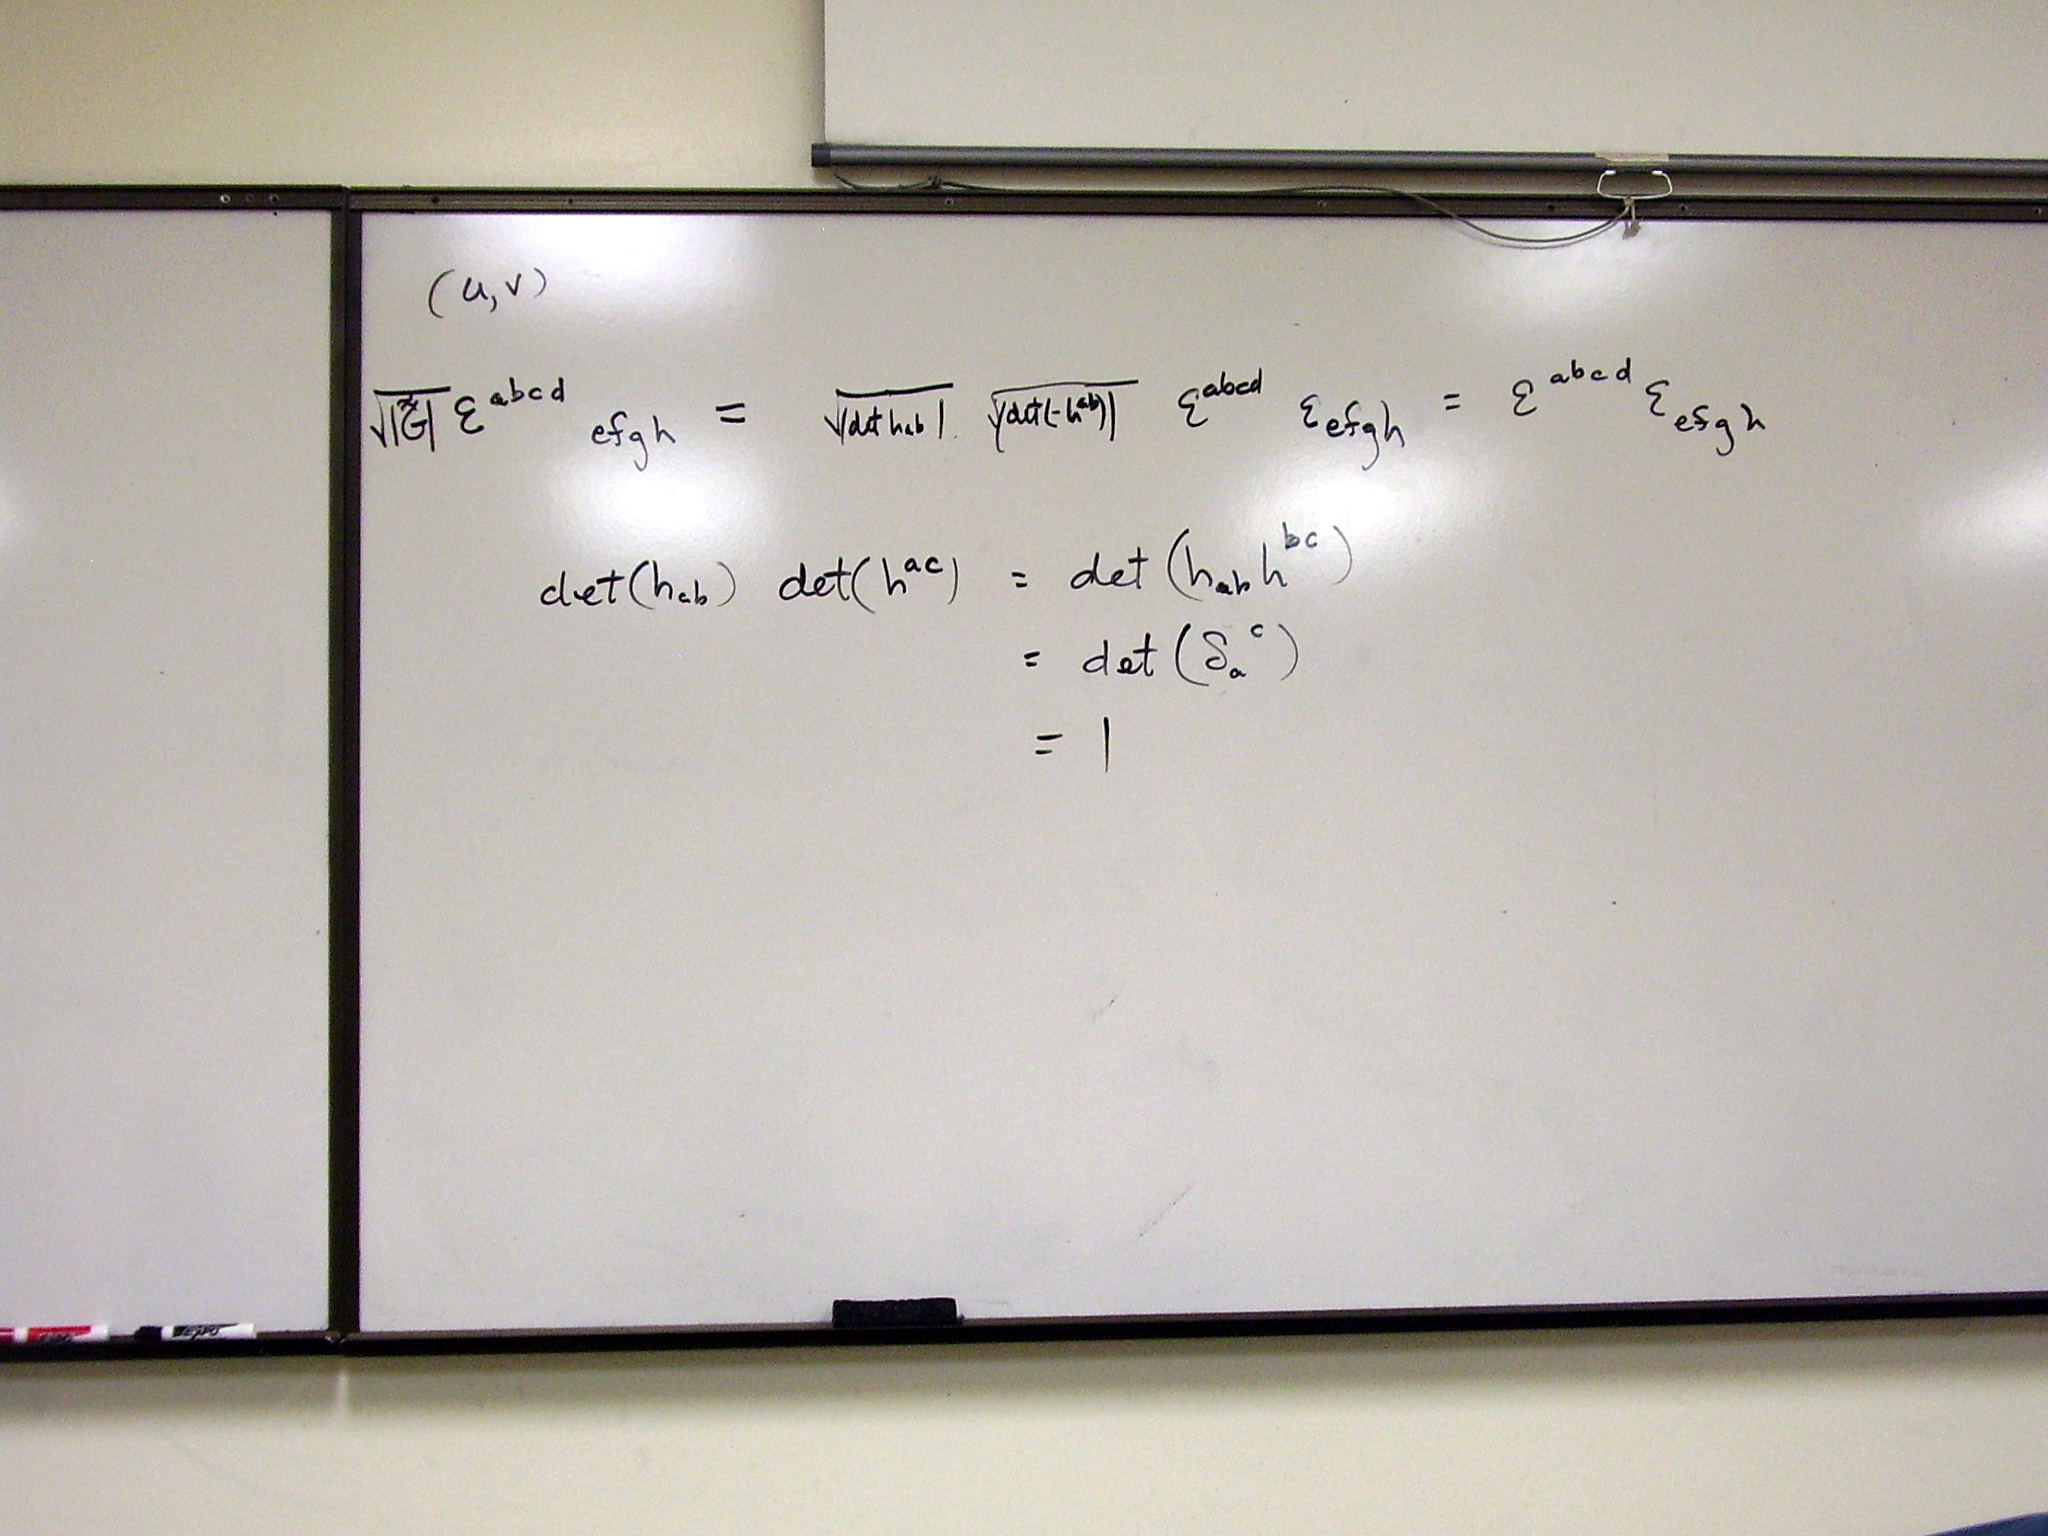 (u,v)
√|G̃| ε^{abcd}_{efgh} = √|det h_{ab}| √|det(-h^{ab})| ε^{abcd} ε_{efgh} = ε^{abcd} ε_{efgh}
det(h_{ab}) det(h^{ac}) = det(h_{ab}h^{bc})
= det(δ_a^c)
= 1
EXPO